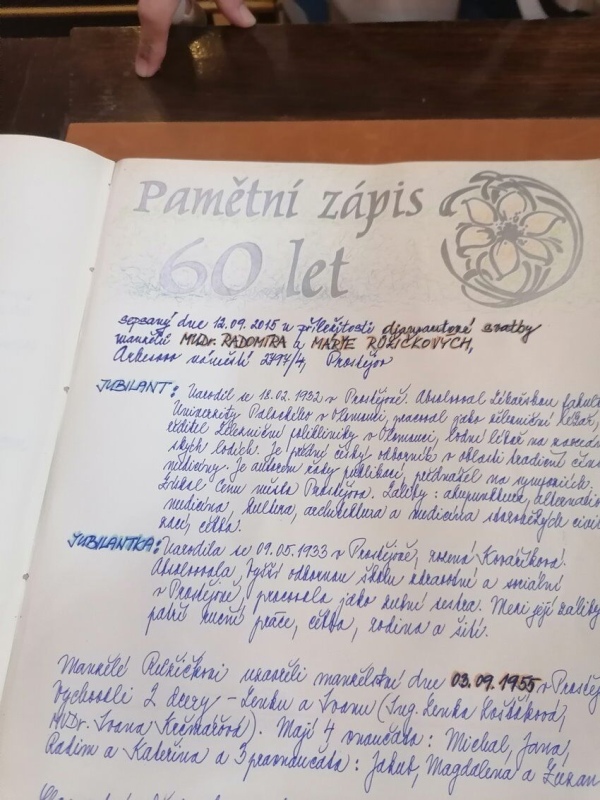 Pamětní zápis
60 let
sepsaný dne 12.09.2015 u příležitosti diamantové svatby
manželů MUDr. RADOMÍRA a MARIE RŮŽIČKOVÝCH,
Arbesovo náměstí 2797/4, Prostějov
JUBILANT: Narodil se 18.02.1932 v Prostějově. Absolvoval lékařskou fakult
Univerzity Palackého v Olomouci, pracoval jako železniční lékař,
ředitel železniční polikliniky v Olomouci, lodní lékař na
ských lodích. Je přední český odborník v oblasti tradiční čín
medicíny. Je autorem řady publikací, přednášel na symposiích.
Získal Cenu města Prostějova. Záliby: akupunktura, alternativ
medicína, kultura, architektura a medicína starověkých civil
četba.
JUBILANTKA: Narodila se 09.05.1933 v Prostějově, rozená Kovaříková.
Absolvovala Vyšší odbornou školu zdravotní a sociální
v Prostějově, pracovala jako zubní sestra. Mezi její záliby
patří ruční práce, četba, rodina a šití.
Manželé Růžičkovi uzavřeli manželství dne 03.09.1955 v Prostěj
Vychovali 2 dcery - Lenku a Ivanu (Ing. Lenka Košťálová,
MUDr. Ivana Kečmářová). Mají 4 vnoučata: Michal, Jana,
Radim a Kateřina a 3 pravnoučata: Jakub, Magdaléna a Zuzan